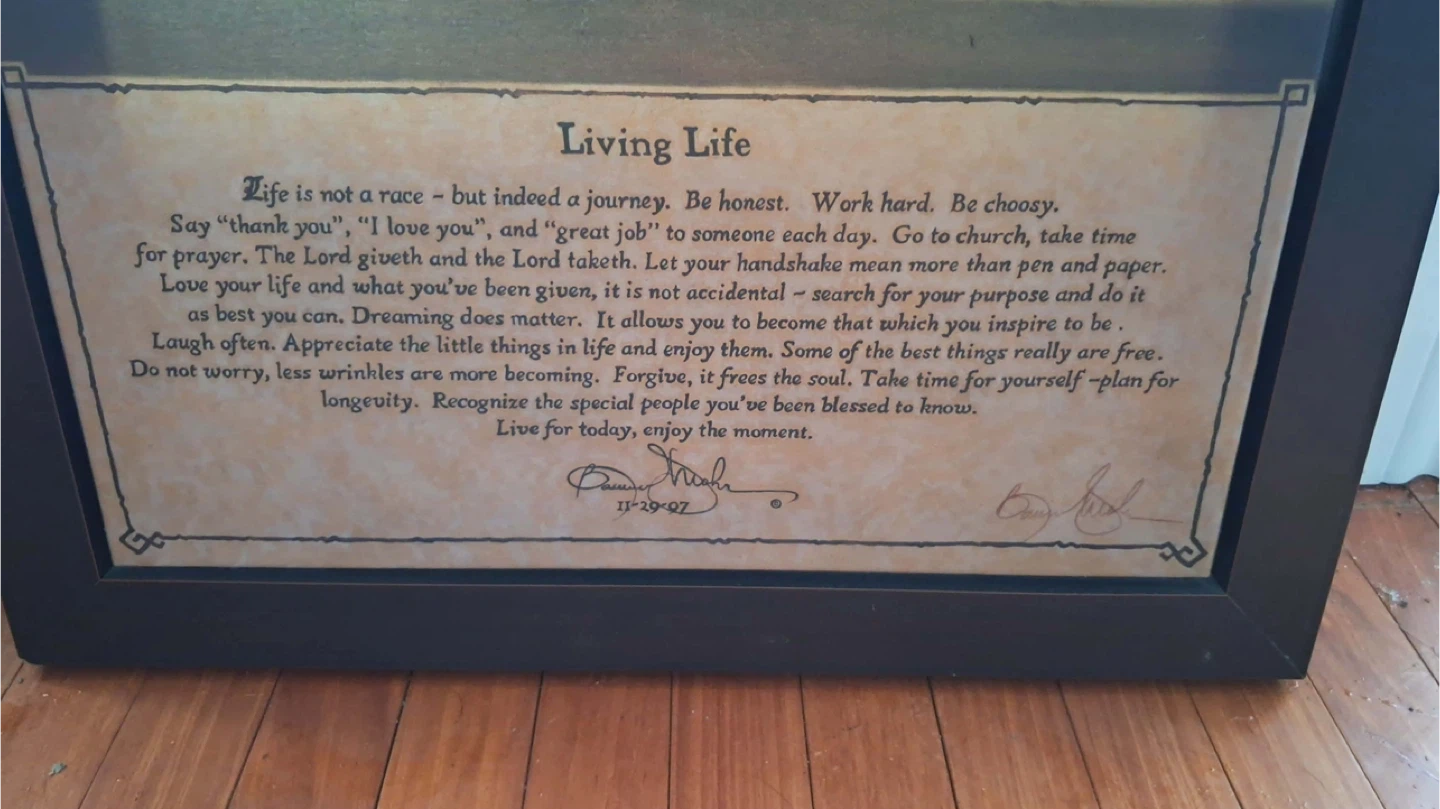 Living Life
Life is not a race - but indeed a journey. Be honest. Work hard. Be choosy.
Say “thank you”, “I love you”, and “great job” to someone each day. Go to church, take time
for prayer. The Lord giveth and the Lord taketh. Let your handshake mean more than pen and paper.
Love your life and what you've been given, it is not accidental - search for your purpose and do it
as best you can. Dreaming does matter. It allows you to become that which you inspire to be .
Laugh often. Appreciate the little things in life and enjoy them. Some of the best things really are free.
Do not worry, less wrinkles are more becoming. Forgive, it frees the soul. Take time for yourself -plan for
longevity. Recognize the special people you've been blessed to know.
Live for today, enjoy the moment.
11-29-97
©